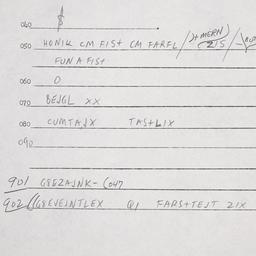 060 $
050 HONIK CM FIST CM FARFL / J+MERN) 215 /
FUN A FIST
060 O
070 BEJGL XX
080 CUMTAJX TASTLIX
090
901 GBEZAJNK- (047
902 // GBEVEJNTLEX Q1 FARS+TEJT 21X